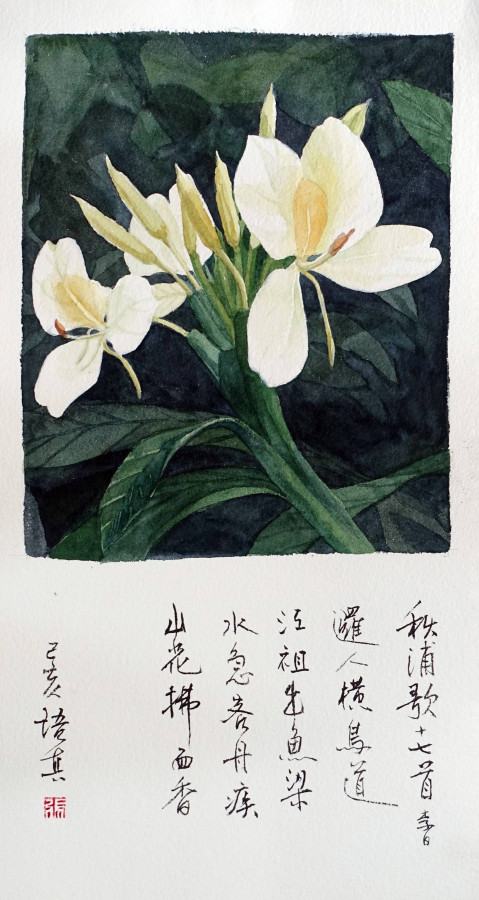 秋浦歌十七首 李白
邏人橫鳥道
江祖出魚梁
水急客舟疾
山花拂面香
己亥
張